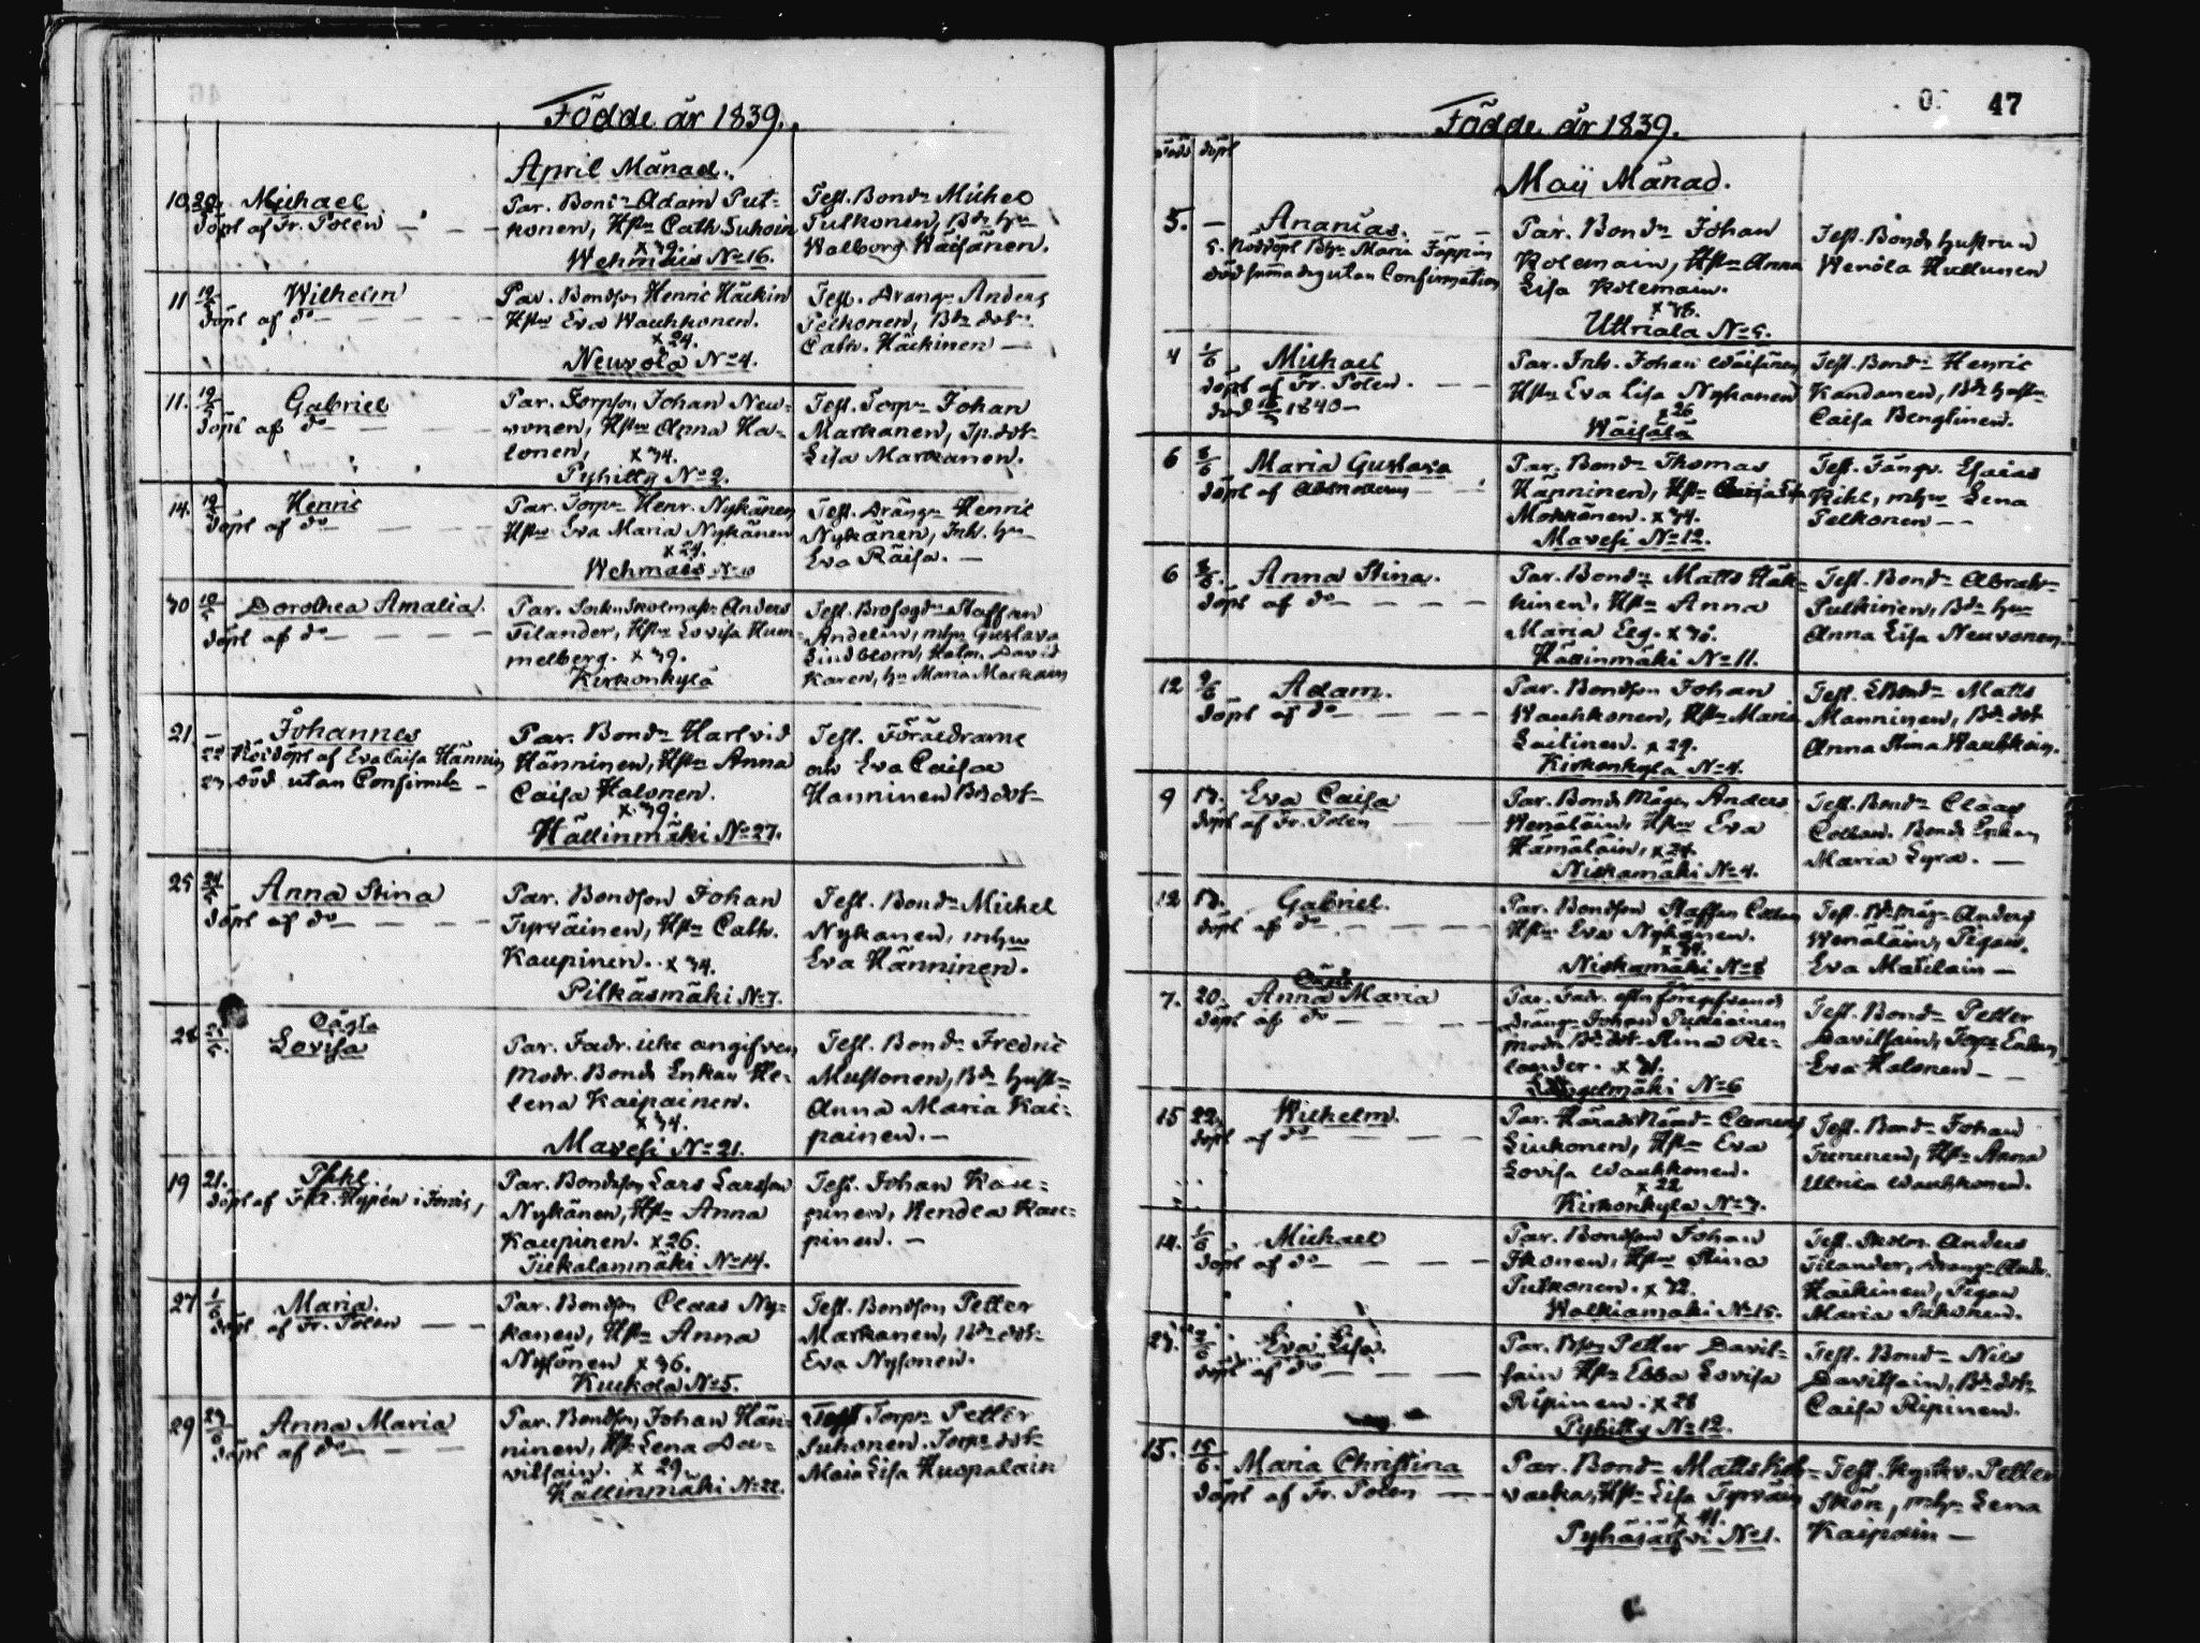 Födde år 1839.
April Månad.
10 20. Michael
döpt af Fr. Polen
Par. Bond. Adam Put-
konen, Hst. Cath Suhoin
x 39.
Wehmais No 16.
Test. Bond. Michel
Pulkonen, Bd. hu
Walborg Wäisänen.
11 12/5 Wilhelm
döpt af do
Par. Bondson Henric Häckin
Hstu Eva Wauhkonen.
x 24.
Neuvola No 4.
Test. Dräng. Anders
Peckonen, Bd. dot.
Cath. Häckinen
11. Gabriel
döpt af do
Par. Torpson Johan Neu-
vonen, Hstu Anna Ha-
lonen, x 34.
Pyhitty No 2.
Test. Torp. Johan
Markanen, Tp. dot.
Lisa Markanen.
14. Henric
döpt af do
Par. Torp. Henr. Nykänen
Hstu Eva Maria Nykänen
x 24.
Wehmais No 10
Test. Dräng. Henric
Nykänen, Inh. hu
Eva Räisä.
30 Dorothea Amalia.
döpt af do
Par. Anders
Tilander, Hstu Lovisa Hum-
melberg. x 39.
Kirkonkylä
Test. Brofogd. Staffan
Andelin, mhu Gustava
Lindblom, David
Karen, hu Maria Markain
21. Johannes
22 Nöddöpt af Eva Caisa Hännin
23. död utan Confirmt.
Par. Bond. Hartvid
Hänninen, Hst. Anna
Caisa Halonen.
x 39.
Hällinmäki No 27.
Test. Föräldrarne
o Eva Caisa
Hanninen Bd dot
25 24/5 Anna Stina
döpt af do
Par. Bondson Johan
Tyrväinen, Hst. Cath.
Kaupinen. x 34.
Pilkäsmäki No 7.
Test. Bond. Michel
Nykanen, mhu
Eva Hänninen.
28 Oäkta
Lovisa
Par. Fadr. icke angifven
Modr. Bonds Enkan He-
lena Kaipainen.
x 34.
Mavesi No 21.
Test. Bond. Fredric
Mustonen, Bd. hust.
Anna Maria Kai-
painen.
19 21. Pehl.
döpt af Hypén i Jorois,
Par. Bondeson Lars Larsson
Nykänen, Hst. Anna
Kaupinen. x 26.
Tiekalanmäki No 14.
Test. Johan Kau-
pinen, Wendla Kau-
pinen.
27 1/6 Maria.
döpt af Fr. Polen
Par. Bondson Claas Ny-
kanen, Hst. Anna
Nysönen x 36.
Kuukola No 5.
Test. Bondson Petter
Markanen, Bd. dot.
Eva Nysonen.
29 23/6 Anna Maria
döpt af do
Par. Bondson Johan Hän-
ninen, Hst. Lena Da-
vitsain. x 29.
Hällinmäki No 22.
Test Torp. Petter
Suhonen. Torp. dot.
Maia Lisa Huopalain
47
Födde år 1839.
född döpt
Maji Månad.
5. Ananias.
5. Nöddöpt Maria Toppin
död samma dag utan Confirmation
Par. Bond. Johan
Kolemain, Hst. Anna
Lisa Kolemain.
x 36.
Uttriala No 5.
Test. Bonds hustrun
Wenla Hullunen
4 1/6 Michael
döpt af Fr. Polen.
död 1840
Par. Inh. Johan Wäisänen
Hst. Eva Lisa Nykanen
x 26
Wäisälä
Test. Bond. Henric
Kandanen, Bd. hust.
Caisa Bengtinen.
6 Maria Gustava
döpt af
Par. Bond. Thomas
Hänninen, Hst.
Mokkänen. x 34.
Mavesi No 12.
Test. Esaias
Kihl, mhu Lena
Pelkonen
6 Anna Stina.
döpt af do
Par. Bond. Matts Häk-
kinen, Hst. Anna
Maria Elg. x 30.
Hällinmäki No 11.
Test. Bond. Abrah.
Pulkinen, Bd. hu
Anna Lisa Neuvonen.
12 9/6 Adam.
döpt af do
Par. Bondson Johan
Wauhkonen, Hst. Maria
Laitinen. x 29.
Kirkonkylä No 4.
Test. Bond. Matts
Manninen, Bd. dot
Anna Stina Wauhkoin.
9 17. Eva Caisa
döpt af Fr. Polén
Par. Bonds Mågen Anders
Wenäläin, Hstu Eva
Hämäläin, x 24.
Niskamäki No 4.
Test. Bond. Claas
Collan. Bonds Enkan
Maria Lyra.
12 17. Gabriel.
döpt af do
Par. Bondson Staffan Collan
Hstu Eva Nykänen.
x 34.
Niskamäki No 8
Test. Bd. måg. Anders
Wenäläin, Pigan.
Eva Matilain
7. 20. Oäkta
Anna Maria
döpt af do
Par. Fadr. efter föregifvande
dräng. Johan Pulliainen
modr. Bd. dot. Stina Re-
lander. x 31.
Längelmäki No 6
Test. Bond. Petter
Davitsain, Torp. Enkan
Eva Halonen
15 22. Wilhelm.
döpt af do
Par. Härads Nämd. Clemens
Liukonen, Hst. Eva
Lovisa Wauhkonen.
x 22
Kirkonkylä No 7.
Test. Bond. Johan
Tununen, Hst. Anna
Ulrica Wauhkonen.
14. 1/6 Michael
döpt af do
Par. Bondson Johan
Ikonen, Hstu Stina
Putkonen. x 32.
Walkiamäki No 15.
Test. Skolm. Anders
Tilander, Dräng. Andr.
Häckinen, Pigan
Maria Pukonen.
23. 2/6 Eva Lisa.
döpt af do
Par. Bson Petter Davit-
sain Hst. Ebba Lovisa
Ripinen. x 28
Pyhitty No 12.
Test. Bond. Nils
Davitsain, Bd. dot.
Caisa Ripinen.
15. Maria Christina
döpt af Fr. Polen
Par. Bond. Matts
Hst. Lisa Tyrväin
x 41.
Pyhäjärfvi No 1.
Test. Petter
Skön, mhu Lena
Kaipain